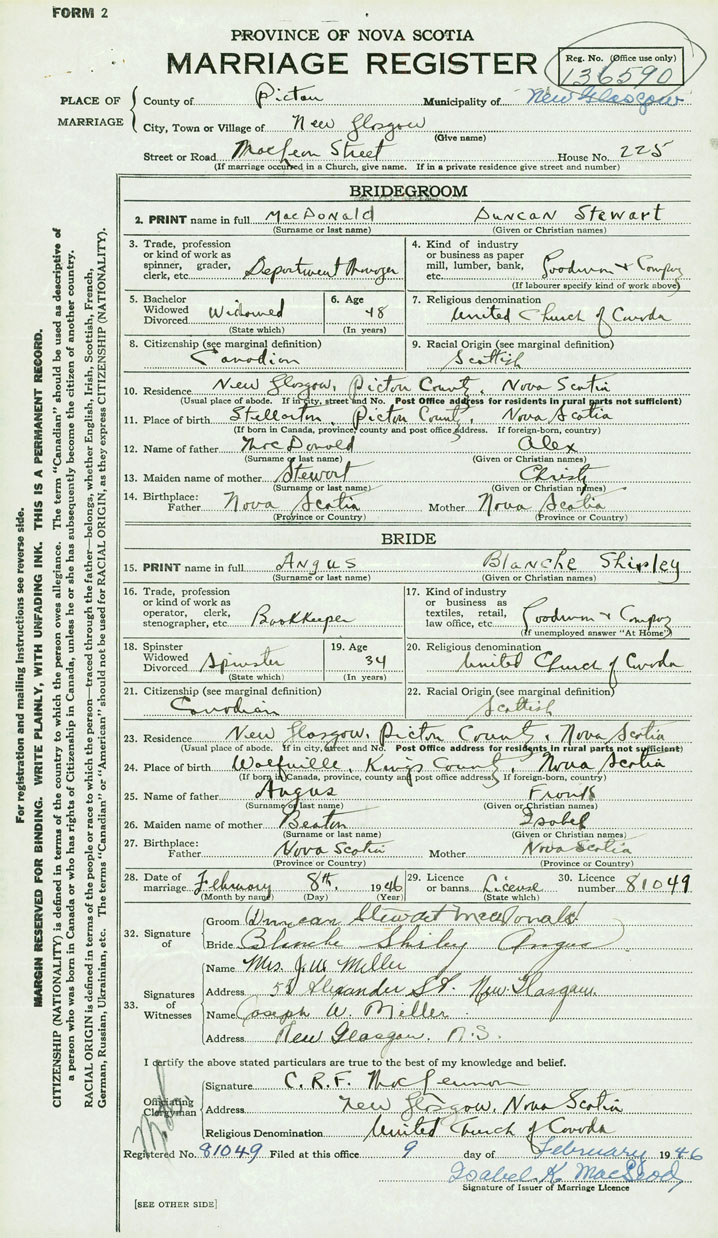 FORM 2
PROVINCE OF NOVA SCOTIA
MARRIAGE REGISTER
Reg. No. (Office use only)
136590
PLACE OF MARRIAGE
County of Pictou Municipality of New Glasgow
City, Town or Village of New Glasgow
(Give name)
Street or Road MacLean Street House No. 225
(If marriage occured in a Church, give name. If in a private residence give street and number)
BRIDEGROOM
2. PRINT name in full MacDonald Duncan Stewart
(Surname or last name) (Given or Christian names)
3. Trade, profession or kind of work as spinner, grader, clerk, etc. Department Manager
4. Kind of industry or business as paper mill, lumber, bank, etc. Goodman & Company
(If labourer specify kind of work above)
5. Bachelor Widowed Divorced Widowed
(State which)
6. Age 48
(In years)
7. Religious denomination
United Church of Canada
8. Citizenship (see marginal definition)
Canadian
9. Racial Origin (see marginal definition)
Scottish
10. Residence New Glasgow, Pictou County, Nova Scotia
(Usual place of abode. If in city, street and No. Post Office address for residents in rural parts not sufficient)
11. Place of birth Stellarton, Pictou County, Nova Scotia
(If born in Canada, province, county and post office address. If foreign-born, country)
12. Name of father MacDonald Alex
(Surname or last name) (Given or Christian names)
13. Maiden name of mother Stewart Christy
(Surname or last name) (Given or Christian names)
14. Birthplace: Father Nova Scotia Mother Nova Scotia
(Province or Country) (Province or Country)
BRIDE
15. PRINT name in full Angus Blanche Shirley
(Surname or last name) (Given or Christian names)
16. Trade, profession or kind of work as operator, clerk, stenographer, etc Bookkeeper
17. Kind of industry or business as textiles, retail, law office, etc Goodman & Company
(If unemployed answer "At Home")
18. Spinster Widowed Divorced Spinster
(State which)
19. Age 34
(In years)
20. Religious denomination
United Church of Canada
21. Citizenship (see marginal definition)
Canadian
22. Racial Origin (see marginal definition)
Scottish
23. Residence New Glasgow, Pictou County, Nova Scotia
(Usual place of abode. If in city, street and No. Post Office address for residents in rural parts not sufficient)
24. Place of birth Wolfville, Kings County, Nova Scotia
(If born in Canada, province, county and post office address. If foreign-born, country)
25. Name of father Angus Frank
(Surname or last name) (Given or Christian names)
26. Maiden name of mother Beaton Isobel
(Surname or last name) (Given or Christian names)
27. Birthplace: Father Nova Scotia Mother Nova Scotia
(Province or Country) (Province or Country)
28. Date of marriage February 8th. 1946
(Month by name) (Day) (Year)
29. Licence or banns License
(State which)
30. Licence number 81049
32. Signature of
Groom Duncan Stewart MacDonald
Bride Blanche Shirley Angus
33. Signatures of Witnesses
Name Mrs. J. W. Miller
Address Alexander St. New Glasgow
Name Joseph W. Miller
Address New Glasgow. N.S.
I certify the above stated particulars are true to the best of my knowledge and belief.
Officiating Clergyman
Signature C. R. F. MacLennon
Address New Glasgow, Nova Scotia
Religious Denomination United Church of Canada
Registered No. 81049 Filed at this office 9 day of February 1946
Isabel K. MacLeod
Signature of Issuer of Marriage Licence
[SEE OTHER SIDE]
For registration and mailing instructions see reverse side.
MARGIN RESERVED FOR BINDING. WRITE PLAINLY, WITH UNFADING INK. THIS IS A PERMANENT RECORD.
CITIZENSHIP (NATIONALITY) is defined in terms of the country to which the person owes allegiance. The term "Canadian" should be used as descriptive of
a person who was born in Canada or who has rights of Citizenship in Canada, unless he or she has subsequently become the citizen of another country.
RACIAL ORIGIN is defined in terms of the people or race to which the person—traced through the father—belongs, whether English, Irish, Scottish, French,
German, Russian, Ukrainian, etc. The terms "Canadian" or "American" should not be used for RACIAL ORIGIN, as they express CITIZENSHIP (NATIONALITY).